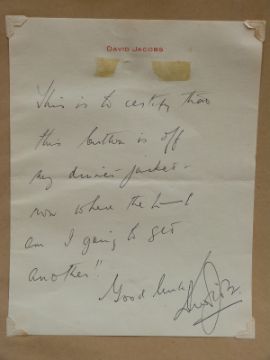 DAVID JACOBS
This is to certify that
this button is off
my dinner-jacket -
now where the h--l
am I going to get
another!!
Good luck